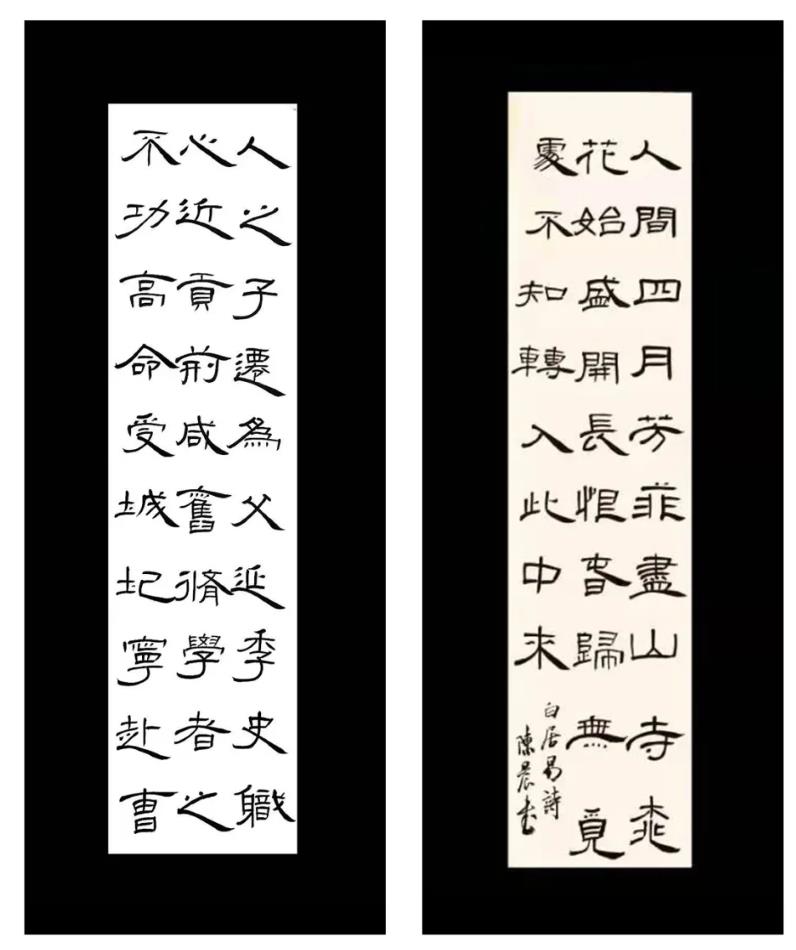 人之子遷為父延季史職
心近貢前咸舊脩學者之
不功高命受城圮寧赴曹
人間四月芳菲盡山寺桃
花始盛開長恨春歸無覓
處不知轉入此中來
白居易詩
陳晨書